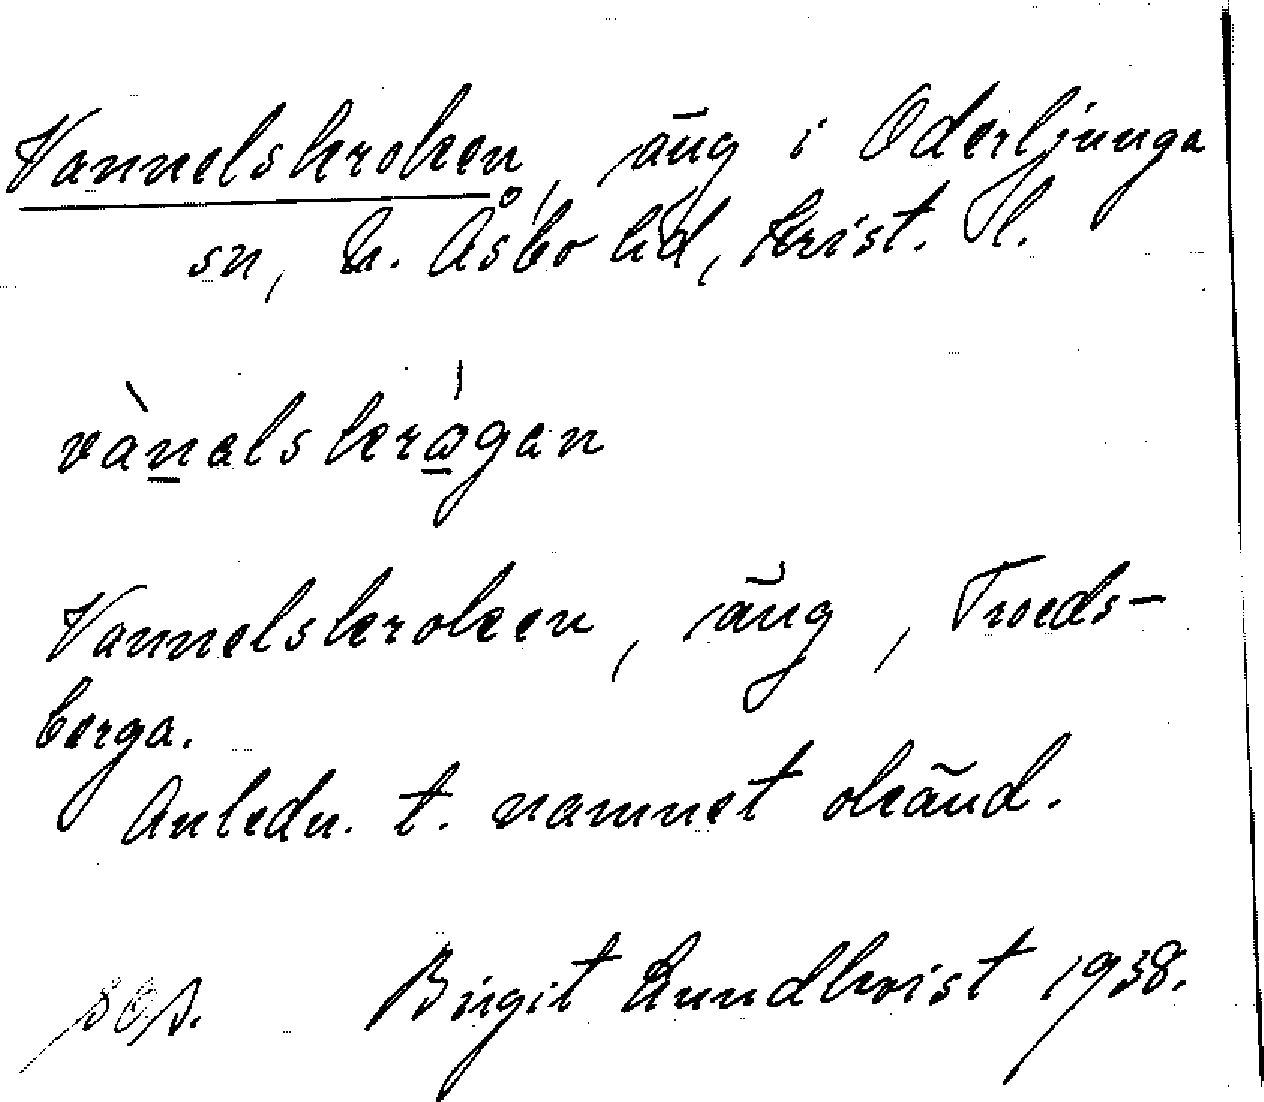 Vannelskroken, äng i Oderljunga
sn, N. Åsbo hd, Krist. l.
vànalskrágan
Vannelskroken, äng, Troeds-
berga.
Anledn. t. namnet okänd.
Birgit Lundkvist 1938.